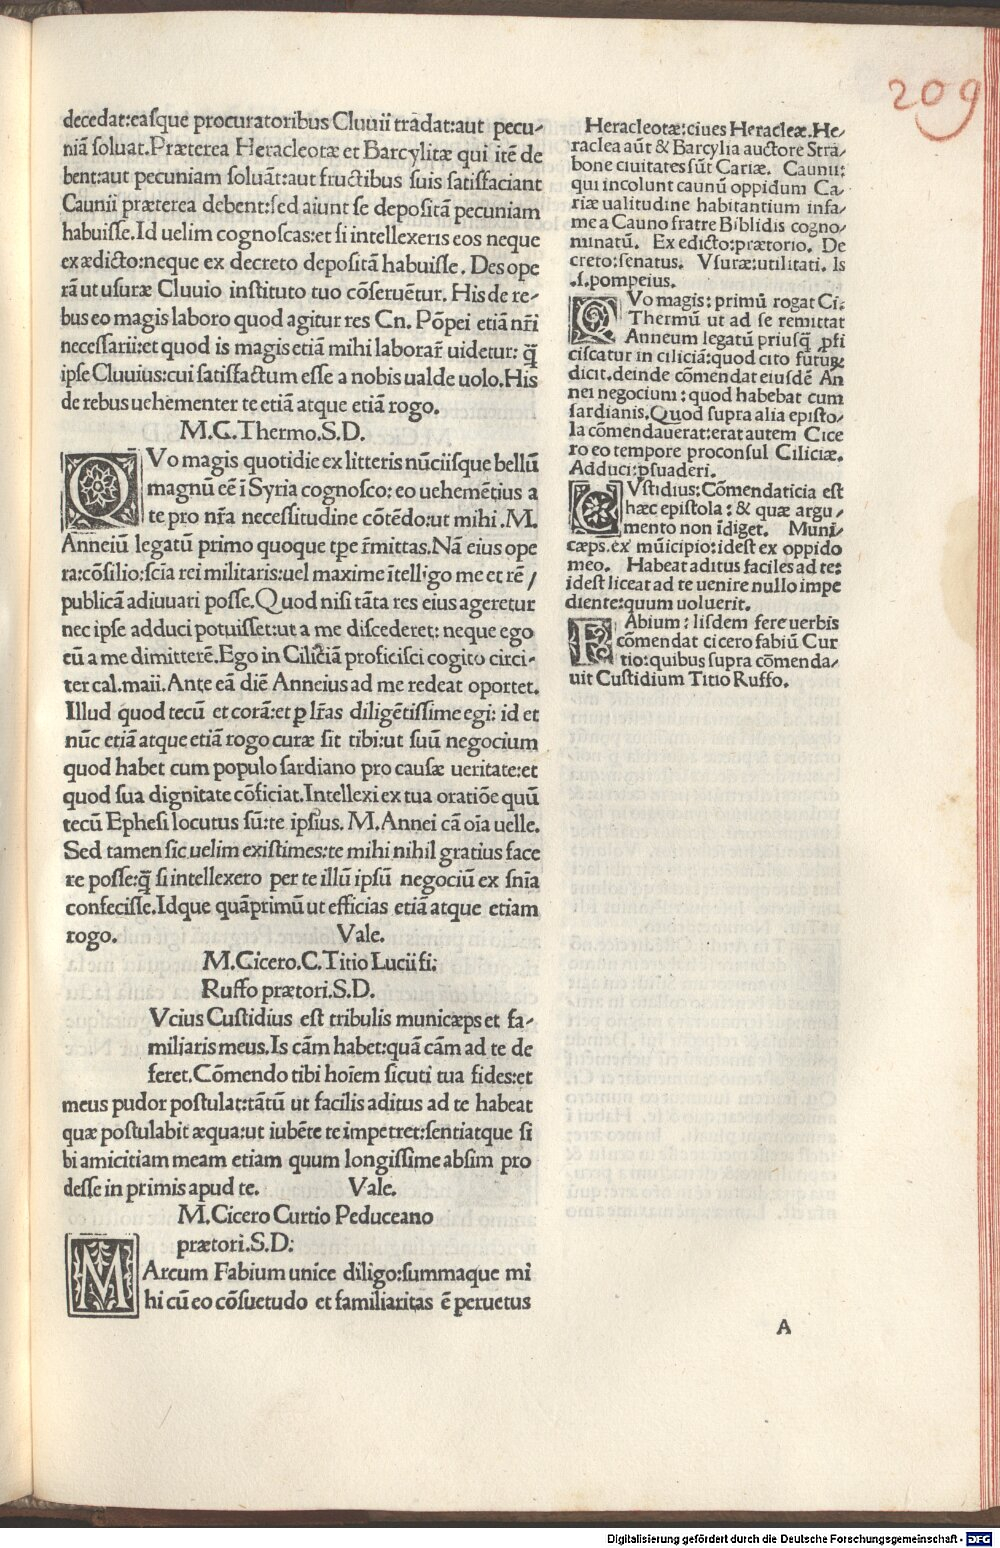 209
decedat:easque procuratoribus Cluuii tradat:aut pecu-
niā soluat.Præterea Heracleotæ et Barcylitæ qui itē de
bent:aut pecuniam soluāt:aut fructibus suis satisfaciant
Caunii præterea debent:sed aiunt se depositā pecuniam
habuisse.Id uelim cognoscas:et si intellexeris eos neque
ex ædicto:neque ex decreto depositā habuisse. Des ope
rā ut usuræ Cluuio instituto tuo cōseruētur. His de re-
bus eo magis laboro quod agitur res Cn. Pōpei etiā nr̄i
necessarii:et quod is magis etiā mihi laborar̄ uidetur: q̄
ipse Cluuius:cui satisfactum esse a nobis ualde uolo.His
de rebus uehementer te etiā atque etiā rogo.
M.C.Thermo.S.D.
QVo magis quotidie ex litteris nūciisque bellū
magnū eē ī Syria cognosco: eo uehemētius a
te pro nr̄a necessitudine cōtēdo:ut mihi .M.
Anneiū legatū primo quoque tpe r̄mittas.Nā eius ope
ra:cōsilio:scīa rei militaris:uel maxime ītelligo me et rē/
publicā adiuuari posse.Quod nisi tāta res eius ageretur
nec ipse adduci potuisset:ut a me discederet: neque ego
eū a me dimitterē.Ego in Ciliciā proficisci cogito circi-
ter cal.maii.Ante eā diē Anneius ad me redeat oportet.
Illud quod tecū et corā:et ꝑ lr̄as diligētissime egi: id et
nūc etiā atque etiā rogo curæ sit tibi:ut suū negocium
quod habet cum populo sardiano pro causæ ueritate:et
quod sua dignitate cōficiat.Intellexi ex tua oratiōe quū
tecū Ephesi locutus sū:te ipsius. M.Annei cā oīa uelle.
Sed tamen sic uelim existimes:te mihi nihil gratius face
re posse:q̄ si intellexero per te illū ipsū negociū ex snīa
confecisse.Idque quāprimū ut efficias etiā atque etiam
rogo. Vale.
M.Cicero.C.Titio Lucii fi:
Ruffo prætori.S.D.
Vcius Custidius est tribulis municæps et fa-
miliaris meus.Is cām habet:quā cām ad te de
feret.Cōmendo tibi hoīem sicuti tua fides:et
meus pudor postulat:tātū ut facilis aditus ad te habeat
quæ postulabit æqua:ut iubēte te impetret:sentiatque si
bi amicitiam meam etiam quum longissime absim pro
desse in primis apud te. Vale.
M.Cicero Curtio Peduceano
prætori.S.D:
MArcum Fabium unice diligo:summaque mi
hi cū eo cōsuetudo et familiaritas ē peruetus
Heracleotæ:ciues Heracleæ.He-
raclea aūt & Barcylia auctore Stra-
bone ciuitates sūt Cariæ. Caunii:
qui incolunt caunū oppidum Ca-
riæ ualitudine habitantium infa-
me a Cauno fratre Biblidis cogno-
minatū. Ex edicto:prætorio. De
creto:senatus. Vsuræ:utilitati. Is
.s.pompeius.
QVo magis: primū rogat Ci.
Thermū ut ad se remittat
Anneum legatū priusq̄ ꝓfi
ciscatur in ciliciā:quod cito futurū
dicit.deinde cōmendat eiusdē An
nei negocium: quod habebat cum
sardianis.Quod supra alia episto-
la cōmendauerat:erat autem Cice
ro eo tempore proconsul Ciliciæ.
Adduci:ꝑsuaderi.
CVstidius:Cōmendaticia est
hæc epistola: & quæ argu-
mento non īdiget. Muni-
cæps.ex mūicipio:idest ex oppido
meo. Habeat aditus faciles ad te:
idest liceat ad te uenire nullo impe
diente:quum uoluerit.
FAbium: Iisdem fere uerbis
cōmendat cicero fabiū Cur
tio:quibus supra cōmenda-
uit Custidium Titio Ruffo.
A
Digitalisierung gefördert durch die Deutsche Forschungsgemeinschaft - DFG